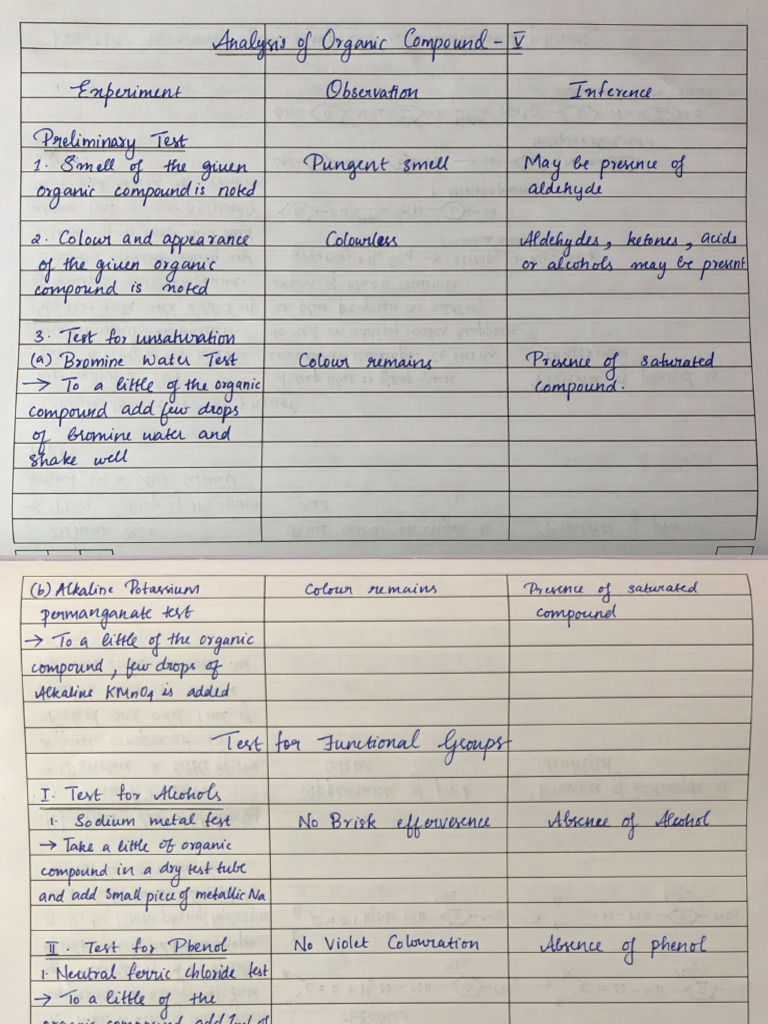 Analysis of Organic Compound - V
Experiment Observation Inference
Preliminary Test
1. Smell of the given Pungent smell May be presence of
organic compound is noted aldehyde
2. Colour and appearance Colourless Aldehydes, ketones, acids
of the given organic or alcohols may be present
compound is noted
3. Test for unsaturation
(a) Bromine Water Test Colour remains Presence of saturated
→ To a little of the organic compound.
compound add few drops
of bromine water and
shake well
(b) Alkaline Potassium Colour remains Presence of saturated
permanganate test compound
→ To a little of the organic
compound, few drops of
Alkaline KMnO4 is added
Test for Functional Groups
I. Test for Alcohols
1. Sodium metal test No Brisk effervesence Absence of Alcohol
→ Take a little of organic
compound in a dry test tube
and add small piece of metallic Na
II. Test for Phenol No Violet Colouration Absence of phenol
1. Neutral ferric chloride test
→ To a little of the
organic compound add 1ml of